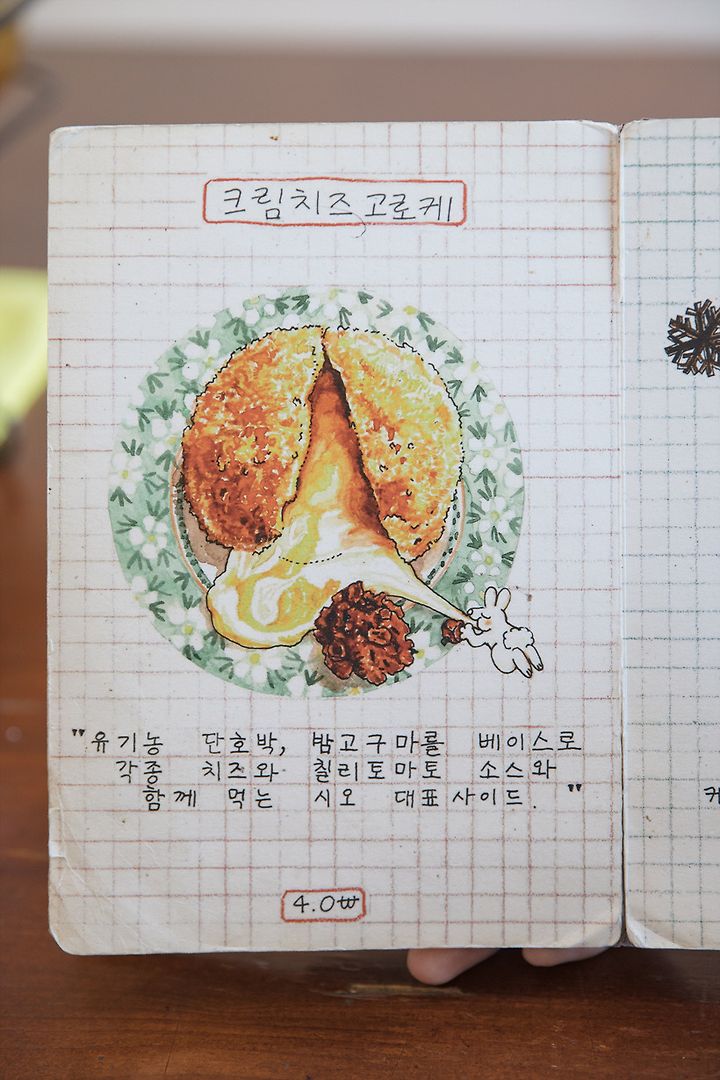 크림치즈고로케
"유기농 단호박, 밤고구마를 베이스로
각종 치즈와 칠리토마토 소스와
함께 먹는 시오 대표사이드."
4.0₩
케